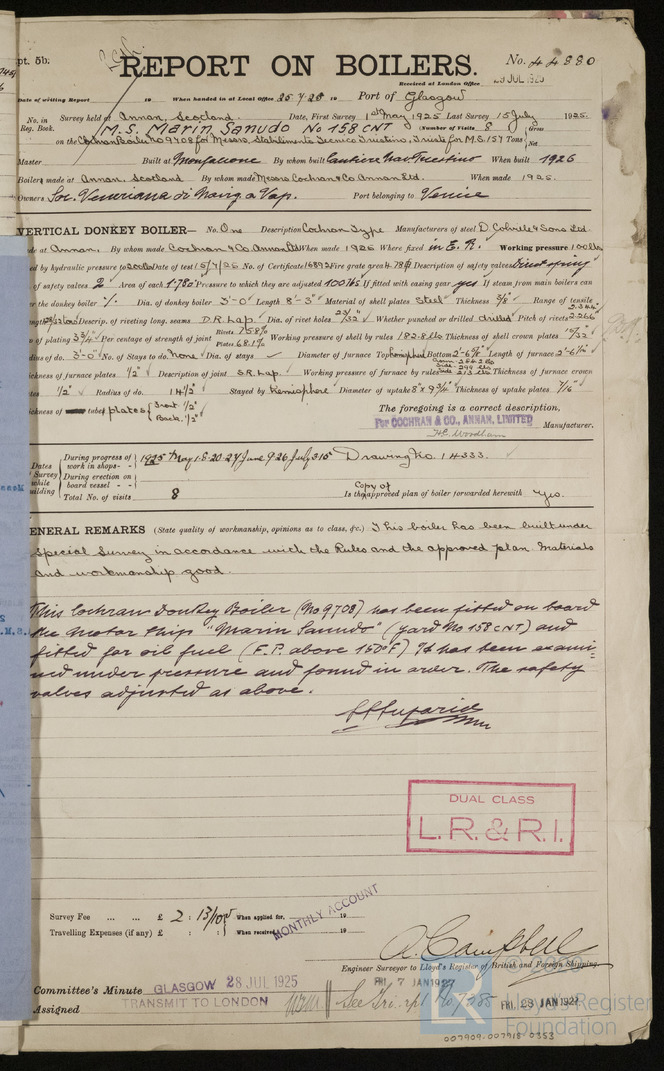 pt. 5b.
REPORT ON BOILERS.
No. 44880
Received at London Office 29 JUL 1925
Date of writing Report 19 When handed in at Local Office 25.7.25 19 Port of Glasgow
No. in Reg. Book. Survey held at Annan, Scotland. Date, First Survey 1st May 1925 Last Survey 15 July 1925.
M.S. Marin Sanudo No 158 CNT (Number of Visits 8 Gross
on the Cochran Boiler No 9708 for Messrs. Stabilimento Tecnico Triestino, Trieste for M.S. 157 Tons Net
Master Built at Monfalcone By whom built Cantiere Nav. Triestino When built 1926
Boilers made at Annan. Scotland By whom made Messrs Cochran & Co Annan Ltd. When made 1925.
Owners Soc. Veneziana di Navig. a Vap. Port belonging to Venice
VERTICAL DONKEY BOILER— No. One Description Cochran Type Manufacturers of steel D. Colville & Sons Ltd.
de at Annan. By whom made Cochran & Co. Annan Ltd When made 1925 Where fixed in E.R. Working pressure 100 lbs
ed by hydraulic pressure to 200 lbs Date of test 15/7/25 No. of Certificate 16892 Fire grate area 4.78 Description of safety valves Direct spring
of safety valves 2 Area of each 1.780 Pressure to which they are adjusted 100 lbs. If fitted with easing gear yes If steam from main boilers can
r the donkey boiler Dia. of donkey boiler 3'-0" Length 8'-3" Material of shell plates Steel Thickness Range of tensile
Descrip. of riveting long. seams D.R. Lap. Dia. of rivet holes 23/32" Whether punched or drilled drilled Pitch of rivets 2.266
of plating 3 3/4" Per centage of strength of joint Rivets 75.8% Plates 68.1% Working pressure of shell by rules 182.8 lbs Thickness of shell crown plates
dius of do. 3'-0" No. of Stays to do. None Dia. of stays Diameter of furnace Top hemisphl Bottom 2'-6 Length of furnace 2'-6
ickness of furnace plates 1/2" Description of joint S.R. Lap. Working pressure of furnace by rules Thickness of furnace crown
ates 1/2" Radius of do. 14 1/2" Stayed by Hemisphere Diameter of uptake 8" x 9 3/4" Thickness of uptake plates 7/16"
ckness of tube plates Front 1/2" Back. 1/2"
The foregoing is a correct description,
For COCHRAN & CO., ANNAN, LIMITED
H.E. Woodham Manufacturer.
Dates Survey while building
During progress of work in shops - - 1925 May 1.8.20.27 June 9.26 July 3.15 Drawing No. 14333.
During erection on board vessel - -
Total No. of visits 8
Is the Copy of approved plan of boiler forwarded herewith Yes.
ENERAL REMARKS (State quality of workmanship, opinions as to class, &c.) This boiler has been built under
special Survey in accordance with the Rules and the approved plan. Materials
and workmanship good.
This Cochran Donkey Boiler (No 9708) has been fitted on board
the motor ship "Marin Sanudo" (yard No 158 CNT) and
fitted for oil fuel (F.P. above 150°F) It has been exami=
ned under pressure and found in order. The safety
valves adjusted as above.
DUAL CLASS
L.R. & R.I.
Survey Fee ... ... £ 2 : 13/10 When applied for, 19
Travelling Expenses (if any) £ : : When received, 19
MONTHLY ACCOUNT
A. Campbell
Engineer Surveyor to Lloyd's Register of British and Foreign Shipping.
Committee's Minute GLASGOW 28 JUL 1925
FRI. 7 JAN 1927
Assigned TRANSMIT TO LONDON
See Tri. rpt No 7285 FRI. 28 JAN 1927
LR Lloyd's Register Foundation
007909-007918-0353